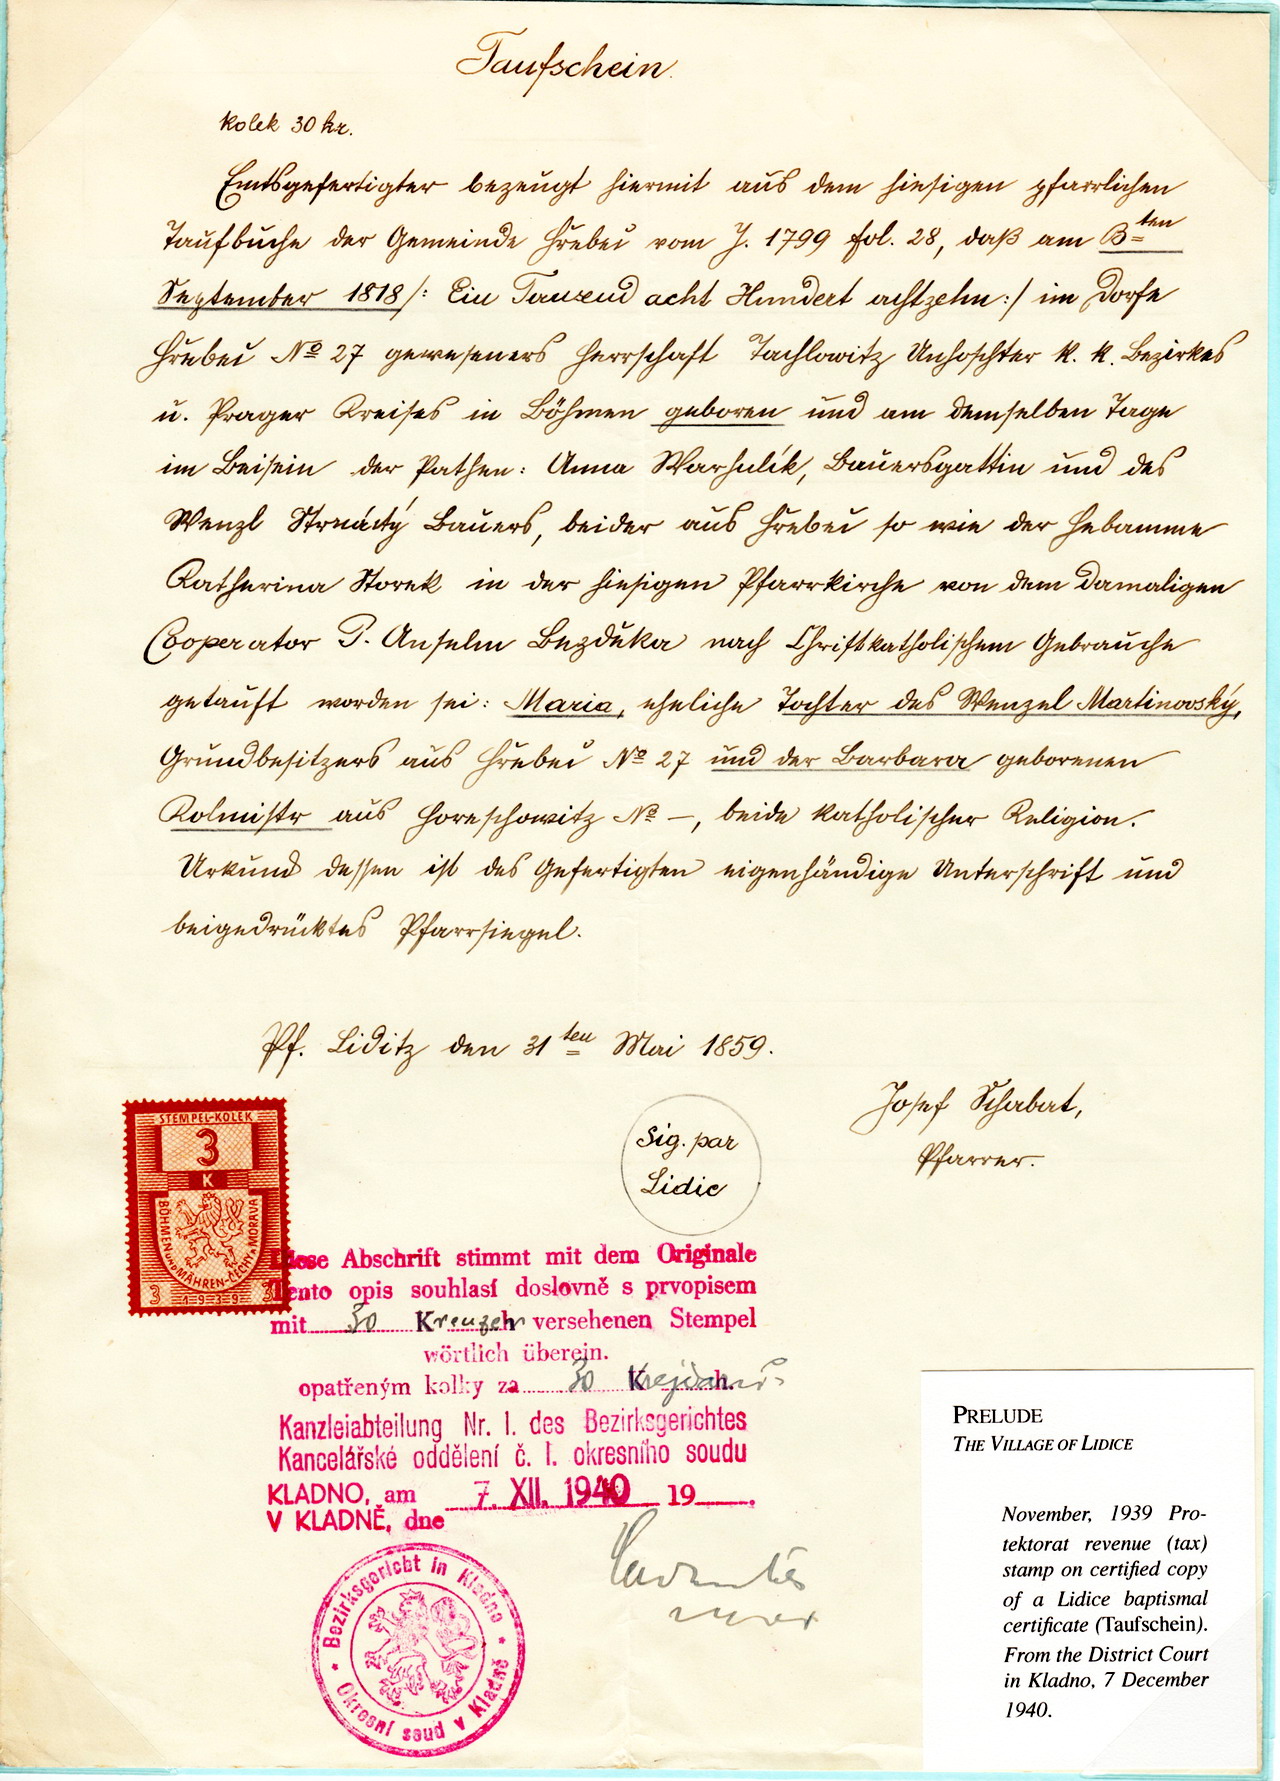 Taufschein.
Kolek 30 kr.
Amtsgefertigter bezeugt hiermit aus dem hiesigen pfarrlichen
Taufbuche der Gemeinde Hřebeč vom J. 1799 fol. 28, daß am 3ten
September 1818 /: Ein Tausend acht Hundert achtzehn :/ im Dorfe
Hřebeč No 27 gewesener Herrschaft Tachlowitz Unhoschter k. k. Bezirkes
u. Prager Kreises in Böhmen geboren und am demselben Tage
im Beisein der Pathen: Anna Warhulík, Bauersgattin und des
Wenzl Bauers, beider aus Hřebeč so wie der Hebamme
Katherina Storek in der hiesigen Pfarrkirche von dem damaligen
Cooperator P. Anselm Bezděka nach Christkatholischem Gebrauche
getauft worden sei: Maria, eheliche Tochter des Wenzel Martinovský,
Grundbesitzers aus Hřebeč No 27 und der Barbara geborenen
Kolmistr aus Horeschowitz No —, beide katholischer Religion.
Urkund dessen ist des Gefertigten eigenhändige Unterschrift und
beigedrücktes Pfarrsiegel.
Pf. Liditz den 31ten Mai 1859.
Josef Schabat,
Pfarrer.
Sig. par
Lidic
STEMPEL-KOLEK
3
K
BÖHMEN UND MÄHREN-ČECHY MORAVA
3 1939 3
Diese Abschrift stimmt mit dem Originale
Tento opis souhlasí doslovně s prvopisem
mit 30 Kreuzer versehenen Stempel
wörtlich überein.
opatřeným kolky za 30 Krejcarů h.
Kanzleiabteilung Nr. I. des Bezirksgerichtes
Kancelářské oddělení č. I. okresního soudu
KLADNO, am 7. XII. 1940 19
V KLADNĚ, dne
Bezirksgericht in Kladno
Okresní soud v Kladně
PRELUDE
THE VILLAGE OF LIDICE
November, 1939 Pro-
tektorat revenue (tax)
stamp on certified copy
of a Lidice baptismal
certificate (Taufschein).
From the District Court
in Kladno, 7 December
1940.